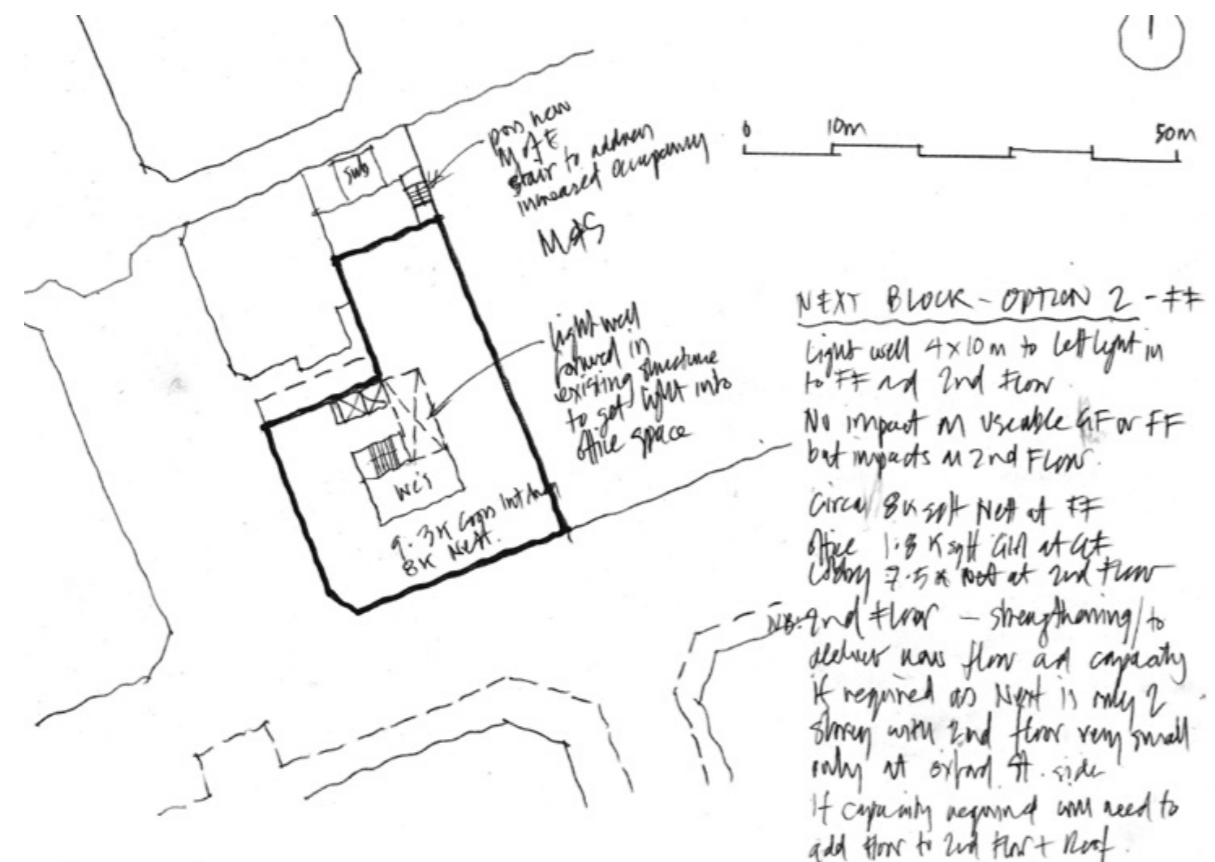 poss new
M of E
stair to address
increased occupancy
M&S
sub
0 10m 50m
light well
formed in
existing structure
to get light into
office space
WC's
9.3K Gross Int Area
8K Nett.
NEXT BLOCK - OPTION 2 - FF
Light well 4x10m to let light in
to FF and 2nd Floor.
No impact on useable GF or FF
but impacts on 2nd Floor.
Circa 8K sqft Nett at FF
Office 1.8K sqft GIA at GF
Lobby 7.5K Nett at 2nd Floor
NB: 2nd Floor - strengthening / to
deliver new floor and capacity
if required as Next is only 2
storey with 2nd floor very small
only at Oxford St. side
If capacity required will need to
add floor to 2nd Floor + Roof.